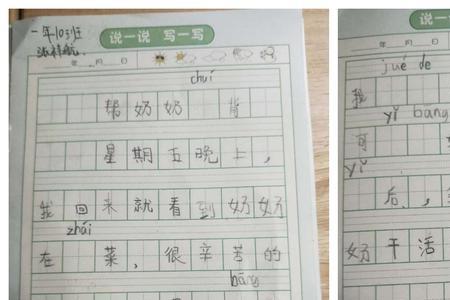 说一说 写一写
年 月 日
chuí
帮奶奶 背
星期五晚上，
我回来就看到奶奶
zhāi
在 菜，很辛苦的
bāng
说一
年 月
jué de
我
yǐ bāng
可
yǐ
后，
奶干活